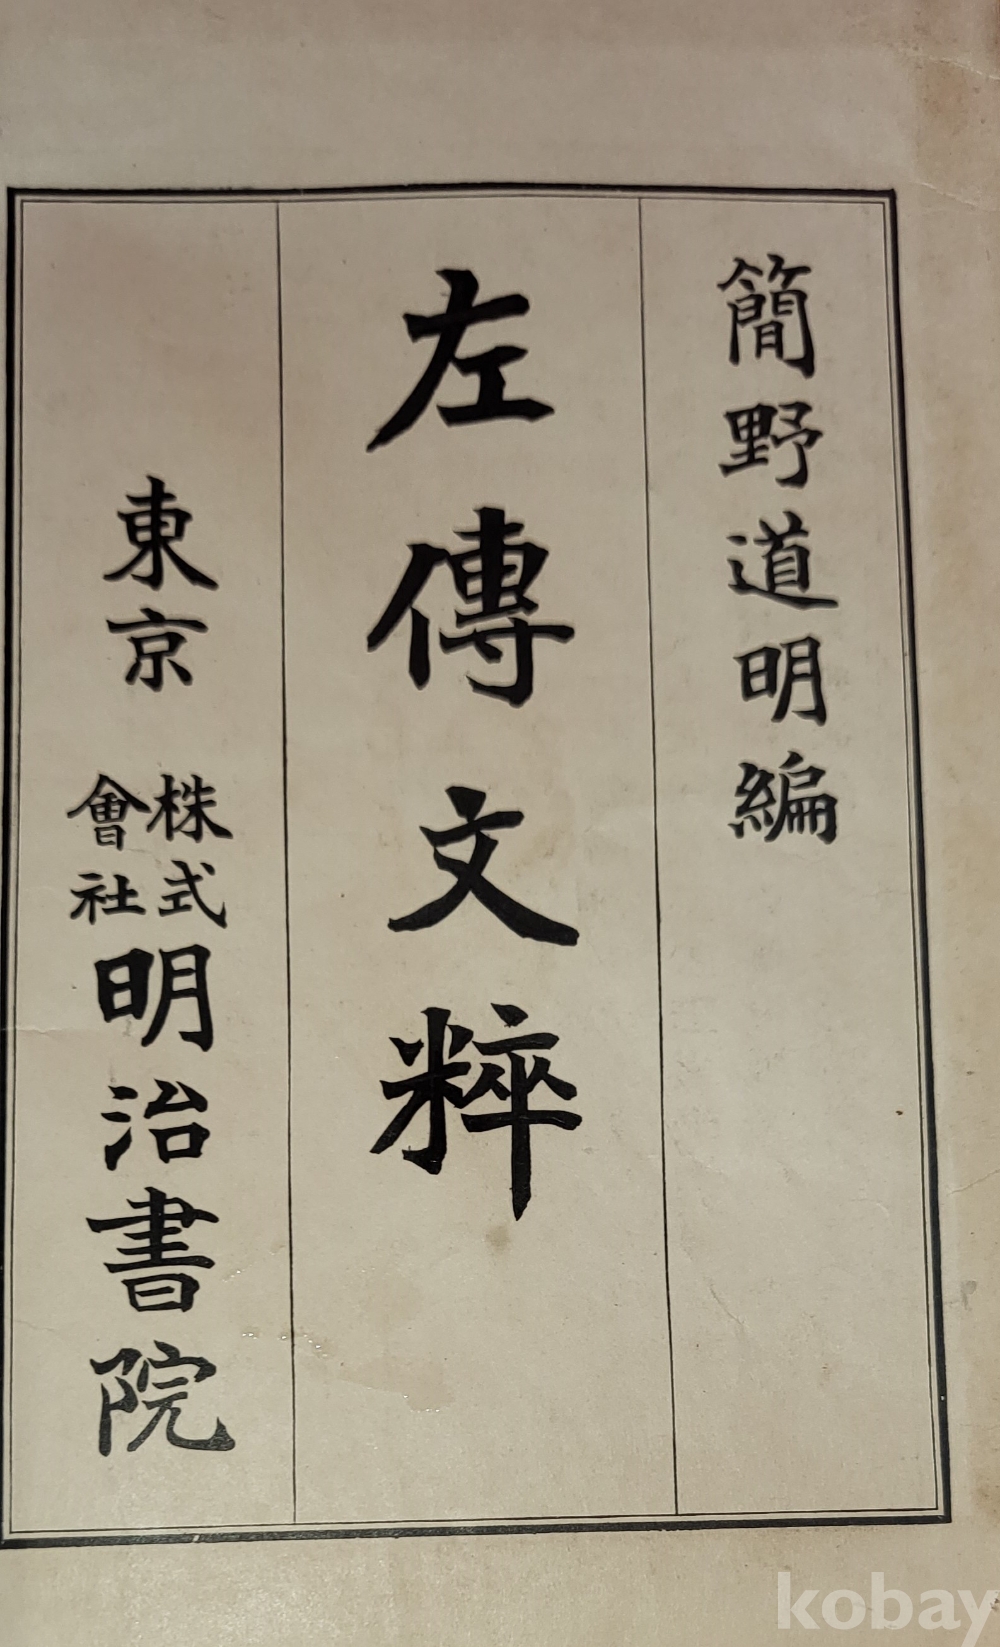 簡野道明編
左傳文粹
東京 株式會社 明治書院
kobay